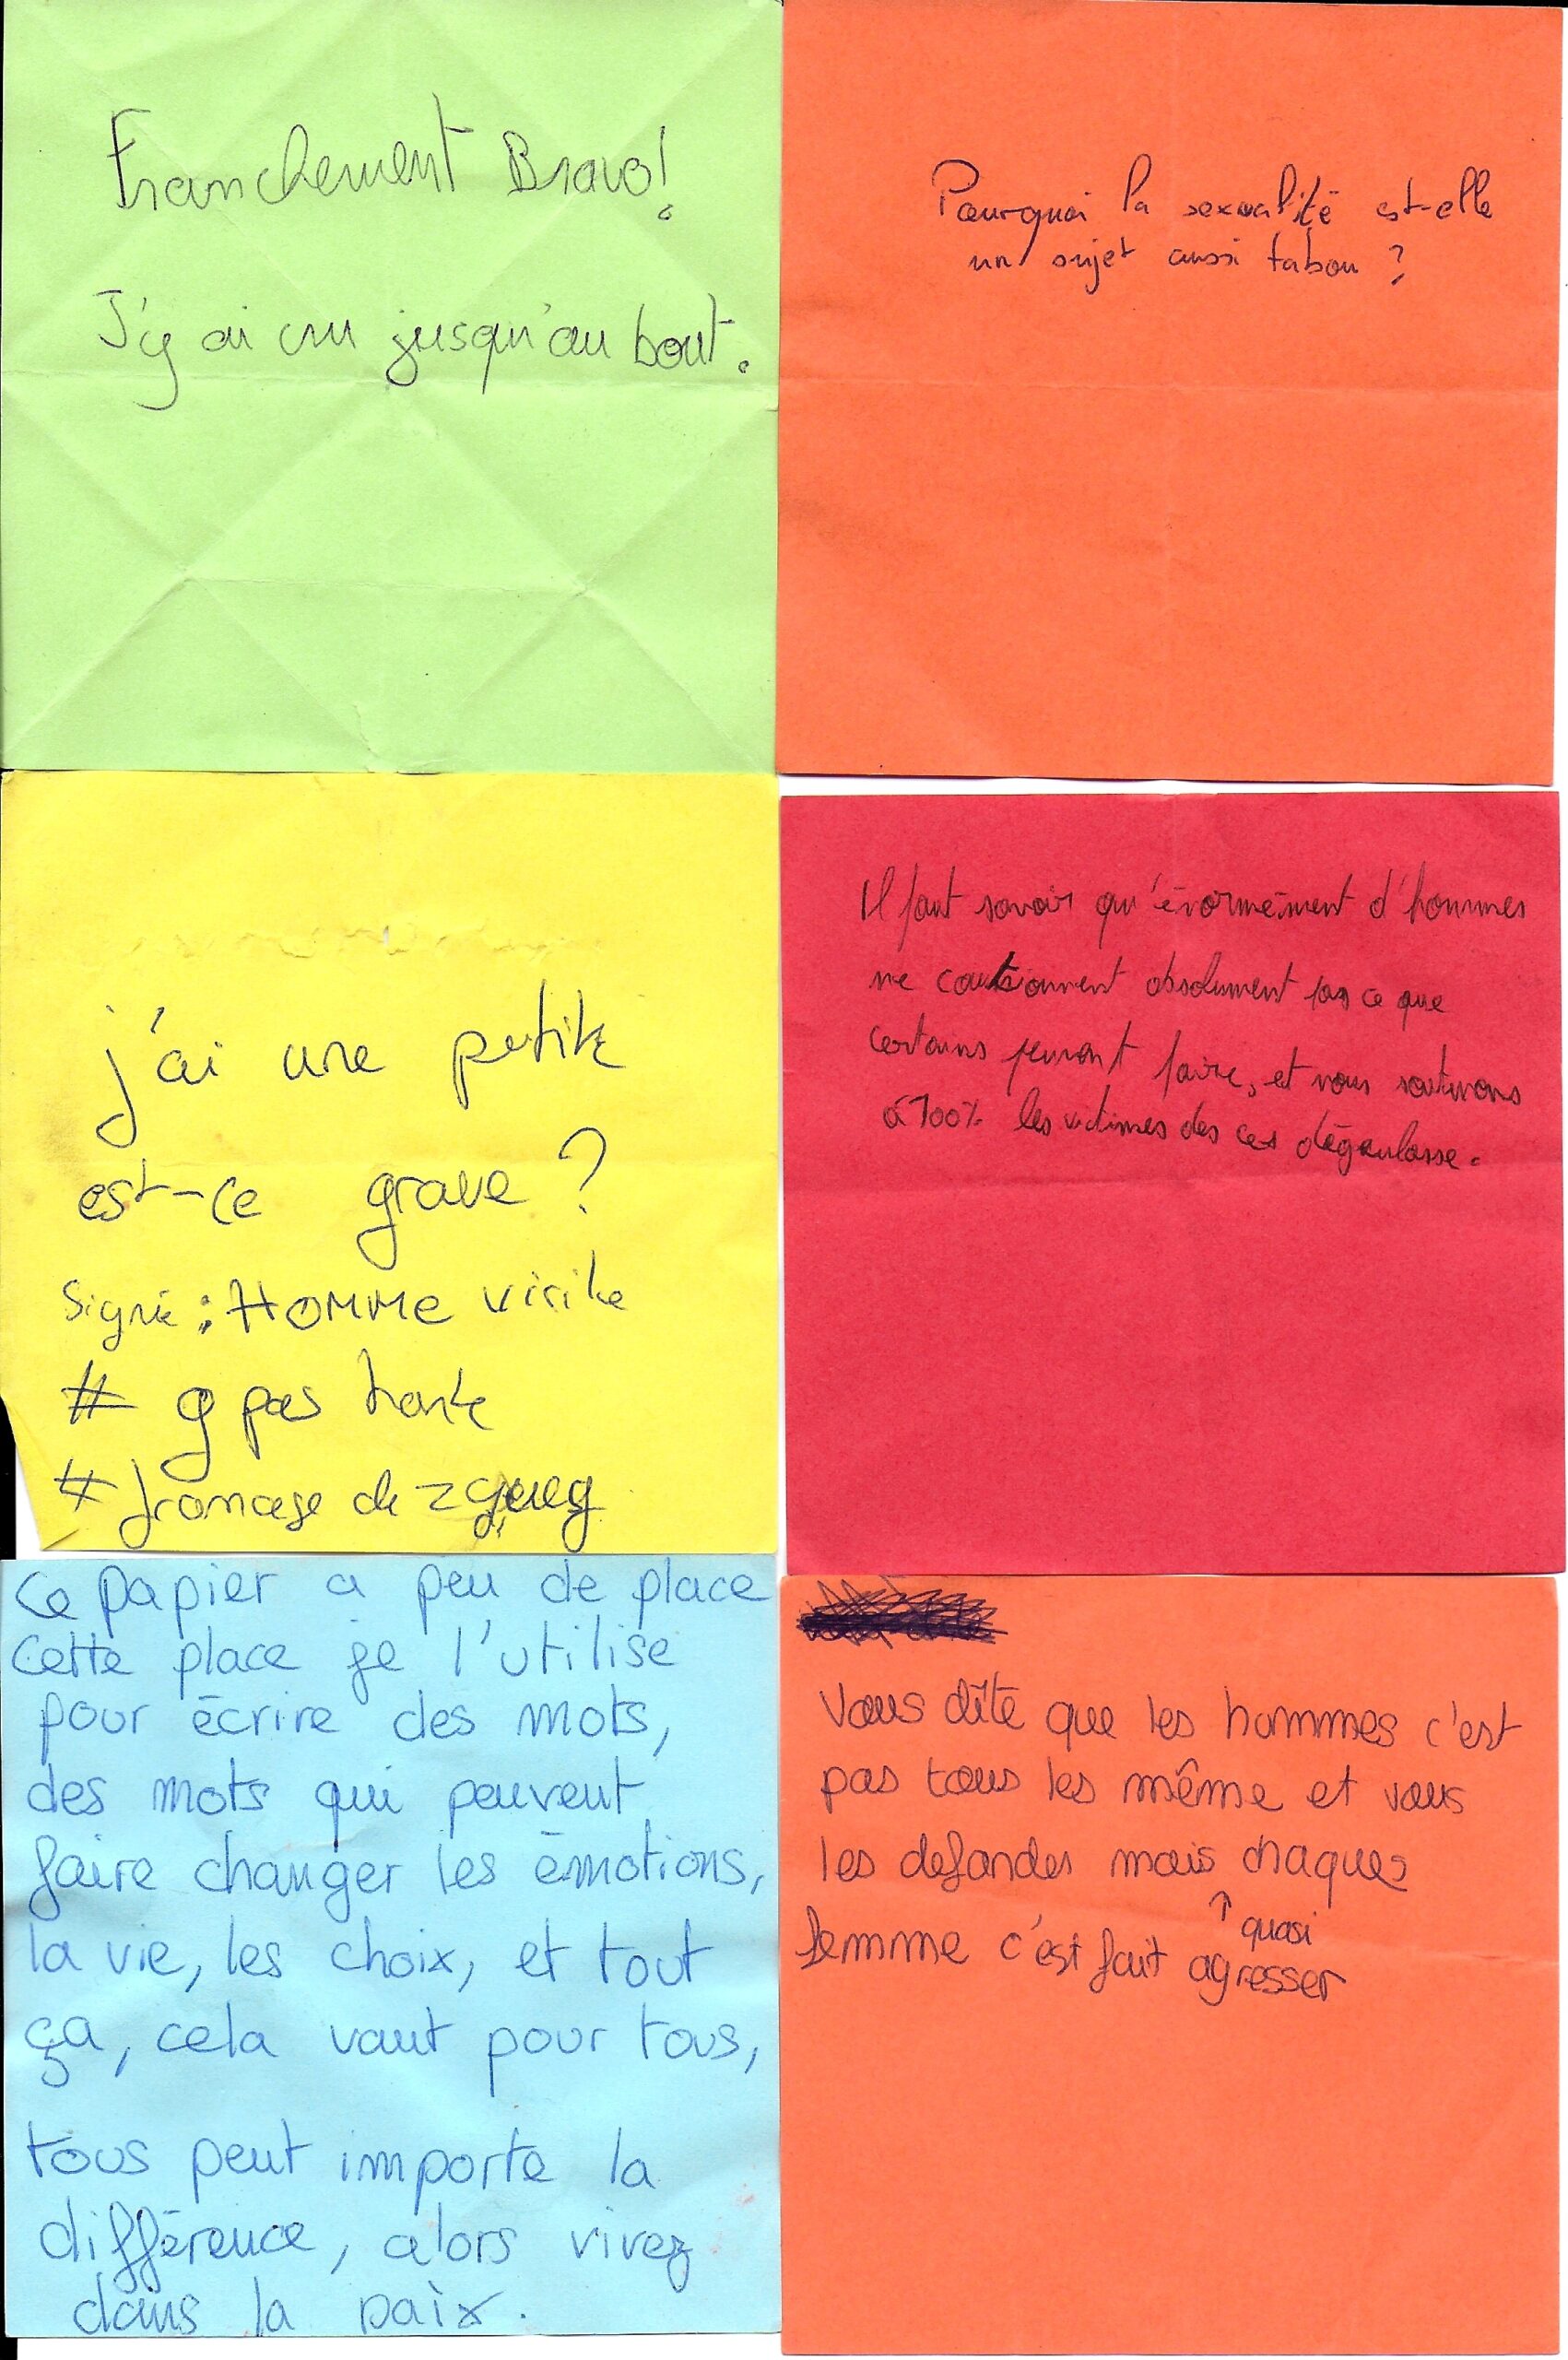 Franchement Bravo!
J'y ai cru jusqu'au bout.
Pourquoi la sexualité est-elle
un sujet aussi tabou ?
j'ai une petite
est-ce grave ?
Signé : HOMMe virile
# g pas honte
# fromage de zgueg
Il faut savoir qu'énormément d'hommes
ne cautionnent absolument pas ce que
certains peuvent faire, et nous soutenons
à 100% les victimes des ces dégeulasse.
Ce papier a peu de place
Cette place je l'utilise
pour écrire des mots,
des mots qui peuvent
faire changer les émotions,
la vie, les choix, et tout
ça, cela vaut pour tous,
tous peut importe la
différence, alors vivez
dans la paix.
Vous dîte que les hommes c'est
pas tous les même et vous
les defandes mais chaques
↑ quasi
femme c'est fait agresser